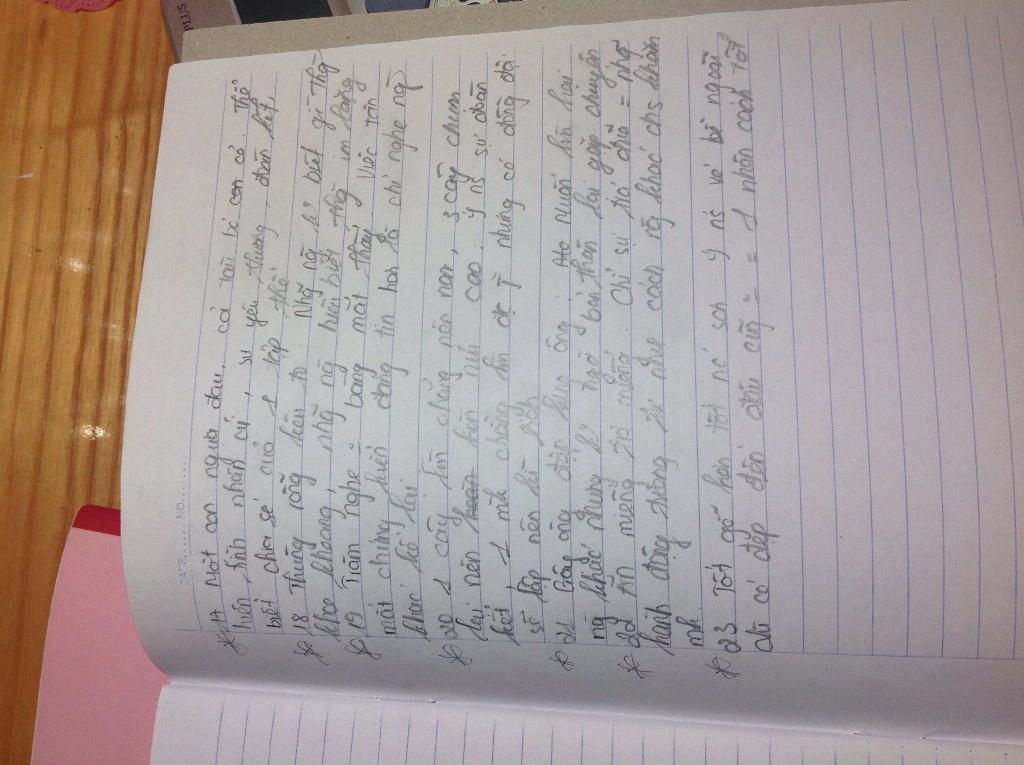 PLUS
DATE........... NO...........
* 17 Một con ngựa đau... cả tàu bỏ cỏ. Thể
hiện hìh nhân cứ, sự yêu thương, đoàn kết,
biết chia sẻ của 1 tập thể
* 18 Thùng rỗng kêu to. Nhữ ng k biết gì thì
khoe khoang, nhữ ng hiểu biết thì im lặng
* 19 Trăm nghe = bằng mắt thấy. Việc tận
mắt chứng kiến đáng tin hơn là chỉ nghe ng
khác kể lại
* 20 1 cây làm chẳng nên non, 3 cây chụm
lại nên hòn núi cao. Ý ns sự đoàn
kết, 1 mh chẳng làm đc j nhưng có đồng đội
sẽ lập nên kì tích
* 21 Gậy ông đập lưng ông. muốn hãm hại
ng khác nhưng k ngờ bản thân lại gặp chuyện
* 22 Ăn miếng trả miếng. Chỉ sự trả đũa = nhữ
hành động giống y như cách ng khác đã làm
mh.
* 23 Tốt gỗ hơn tốt nước sơn. Ý ns vẻ bề ngoài
dù có đẹp đến đâu cũg = 1 nhân cách tốt